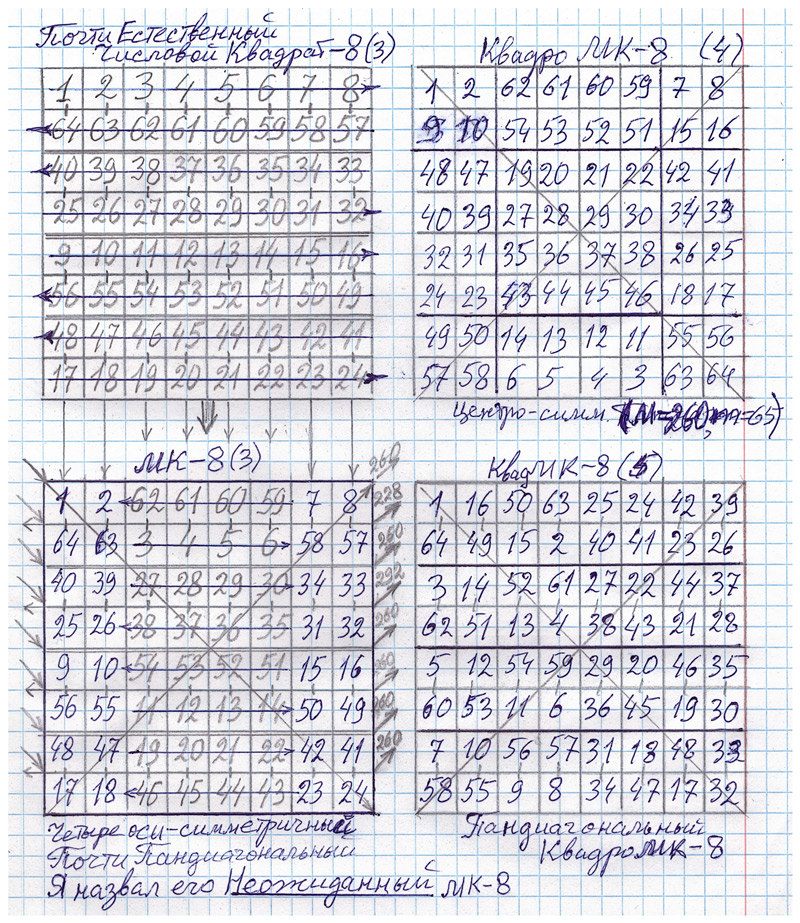 Почти Естественный
Числовой Квадрат-8(3)
1 2 3 4 5 6 7 8
64 63 62 61 60 59 58 57
40 39 38 37 36 35 34 33
25 26 27 28 29 30 31 32
9 10 11 12 13 14 15 16
56 55 54 53 52 51 50 49
48 47 46 45 44 43 42 41
17 18 19 20 21 22 23 24
Квадро МК-8 (4)
1 2 62 61 60 59 7 8
9 10 54 53 52 51 15 16
48 47 19 20 21 22 42 41
40 39 27 28 29 30 34 33
32 31 35 36 37 38 26 25
24 23 43 44 45 46 18 17
49 50 14 13 12 11 55 56
57 58 6 5 4 3 63 64
Центро-симм. (М=260, m=65)
МК-8(3)
1 2 62 61 60 59 7 8
64 63 3 4 5 6 58 57
40 39 27 28 29 30 34 33
25 26 38 37 36 35 31 32
9 10 54 53 52 51 15 16
56 55 11 12 13 14 50 49
48 47 19 20 21 22 42 41
17 18 46 45 44 43 23 24
260
228
260
292
260
260
260
260
Четыре оси-симметричный
Почти Пандиагональный
Я назвал его Неожиданный МК-8
КвадМК-8 (5)
1 16 50 63 25 24 42 39
64 49 15 2 40 41 23 26
3 14 52 61 27 22 44 37
62 51 13 4 38 43 21 28
5 12 54 59 29 20 46 35
60 53 11 6 36 45 19 30
7 10 56 57 31 18 48 33
58 55 9 8 34 47 17 32
Пандиагональный
КвадроМК-8